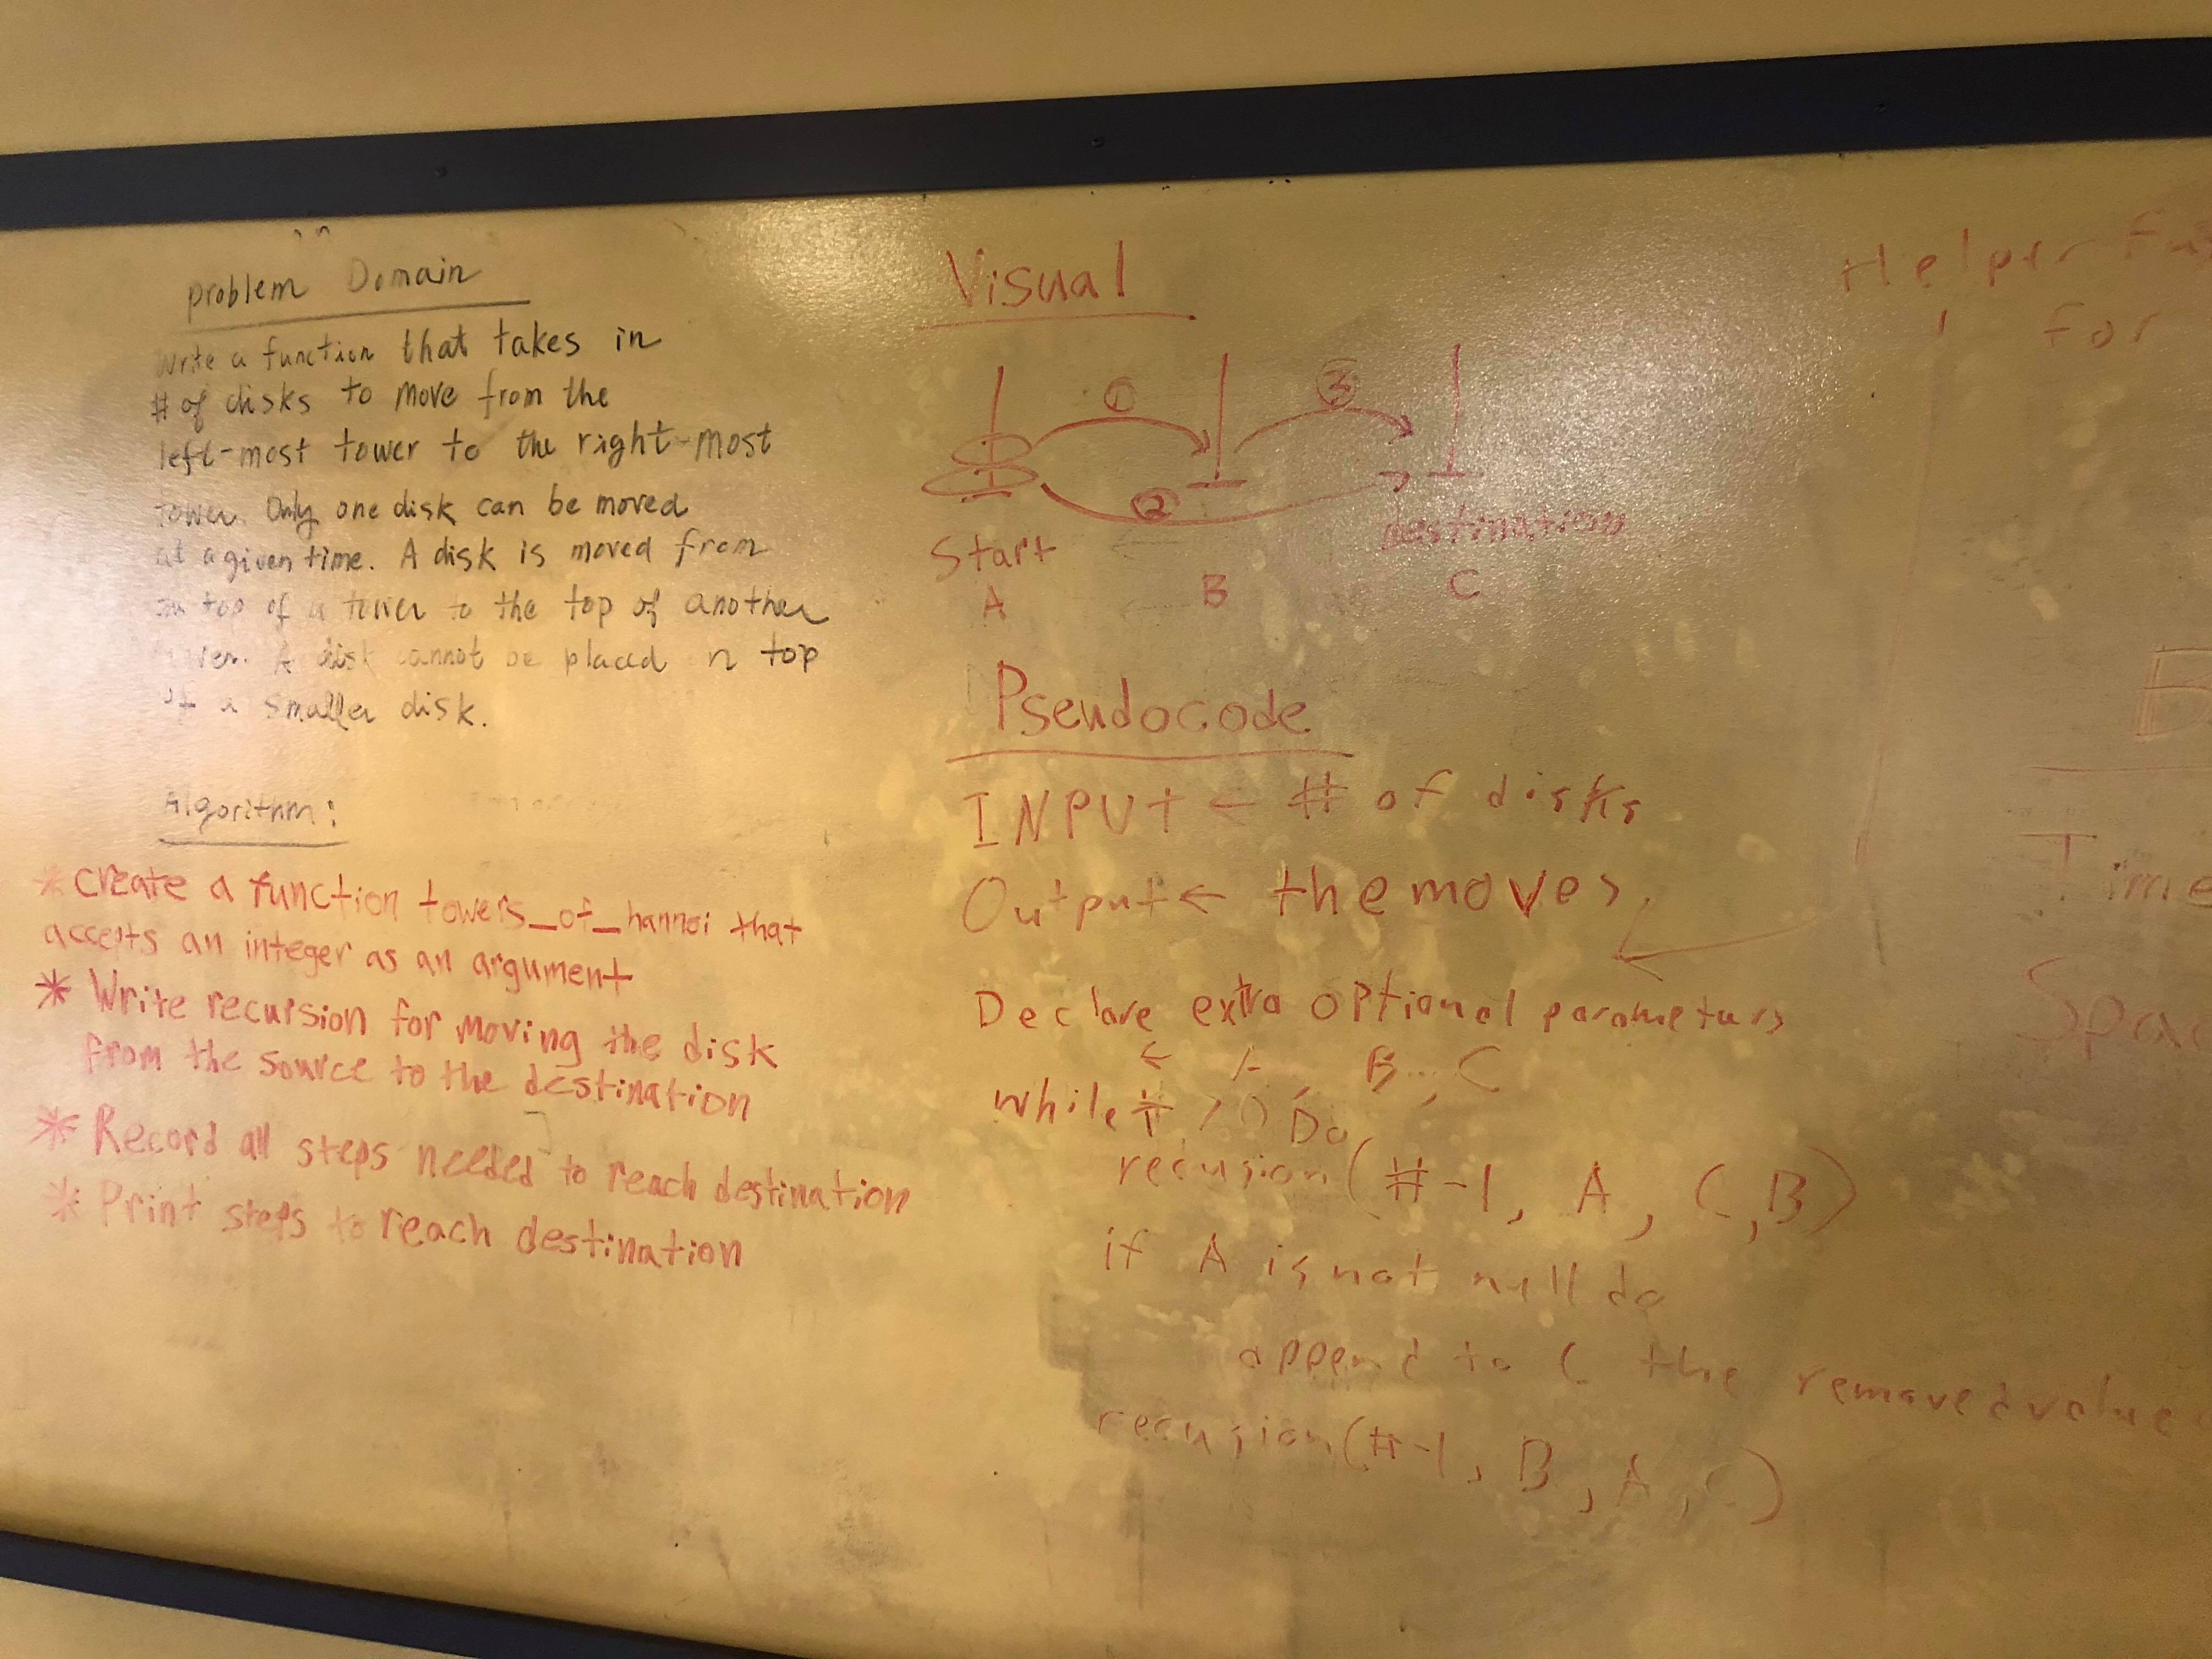 problem Domain
write a function that takes in
# of disks to move from the
left-most tower to the right-most
tower. Only one disk can be moved
at a given time. A disk is moved from
top of a tower to the top of another
A disk cannot be placed n top
of a smaller disk.
Algorithm:
* Create a function towers_of_hannoi that
accepts an integer as an argument
* Write recursion for moving the disk
from the source to the destination
* Record all steps needed to reach destination
* Print steps to reach destination
Visual
① ③
②
destination
Start
A B C
Pseudocode
INPUT ← # of disks
Output ← the moves.
Declare extra optional parameters
← A, B, C
while # > 0 Do
recusion(#-1, A, C, B)
if A is not null do
append to C the removed value
recusion(#-1, B, A, C)
Helper
for
Time